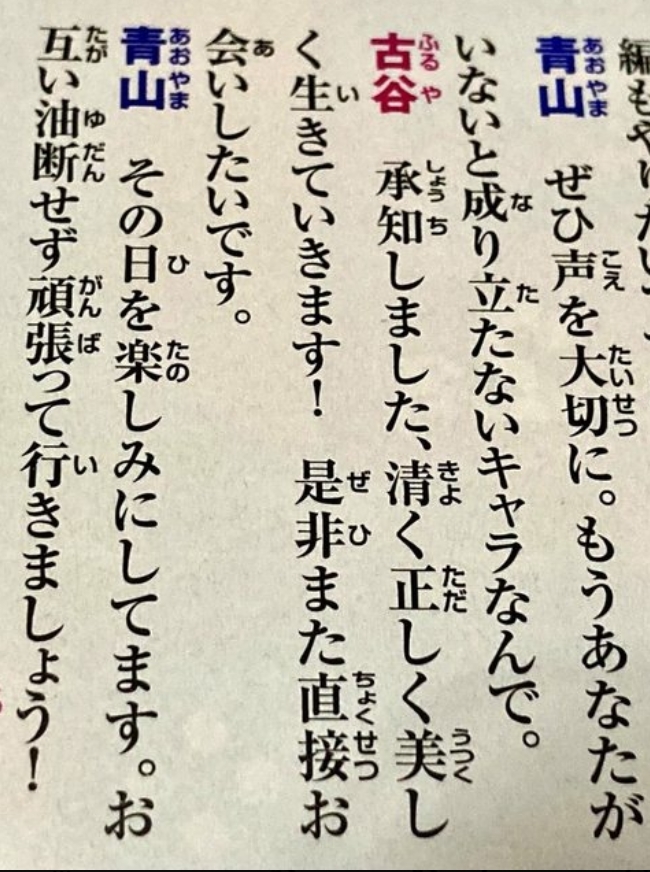 青山 ぜひ声を大切に。もうあなたが
いないと成り立たないキャラなんで。
古谷 承知しました、清く正しく美し
く生きていきます! 是非また直接お
会いしたいです。
青山 その日を楽しみにしてます。お
互い油断せず頑張って行きましょう!